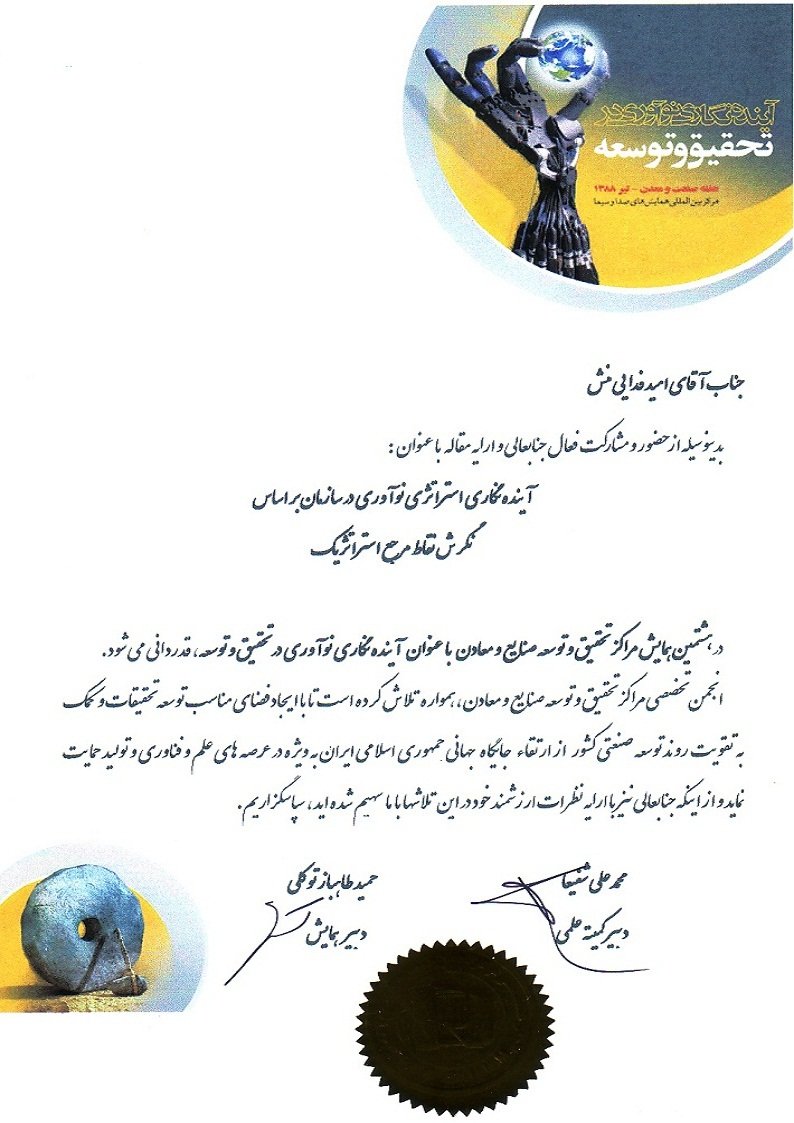 آینده‌نگاری نوآوری در
تحقیق و توسعه
هفته صنعت و معدن - تیر ۱۳۸۸
مرکز بین‌المللی همایش‌های صدا و سیما
جناب آقای امید فدایی منش
بدینوسیله از حضور و مشارکت فعال جنابعالی و ارایه مقاله با عنوان :
آینده نگاری استراتژی نوآوری در سازمان بر اساس
نگرش نقاط مرجع استراتژیک
در هشتمین همایش مراکز تحقیق و توسعه صنایع و معادن با عنوان آینده نگاری نوآوری در تحقیق و توسعه، قدردانی می شود.
انجمن تخصصی مراکز تحقیق و توسعه صنایع و معادن، همواره تلاش کرده است تا با ایجاد فضای مناسب توسعه تحقیقات و کمک
به تقویت روند توسعه صنعتی کشور از ارتقاء جایگاه جهانی جمهوری اسلامی ایران به ویژه در عرصه های علم و فناوری و تولید حمایت
نماید و از اینکه جنابعالی نیز با ارایه نظرات ارزشمند خود در این تلاشها با ما سهیم شده اید، سپاسگزاریم.
محمد علی شفیعا
دبیر کمیته علمی
حمید طاهباز توکلی
دبیر همایش